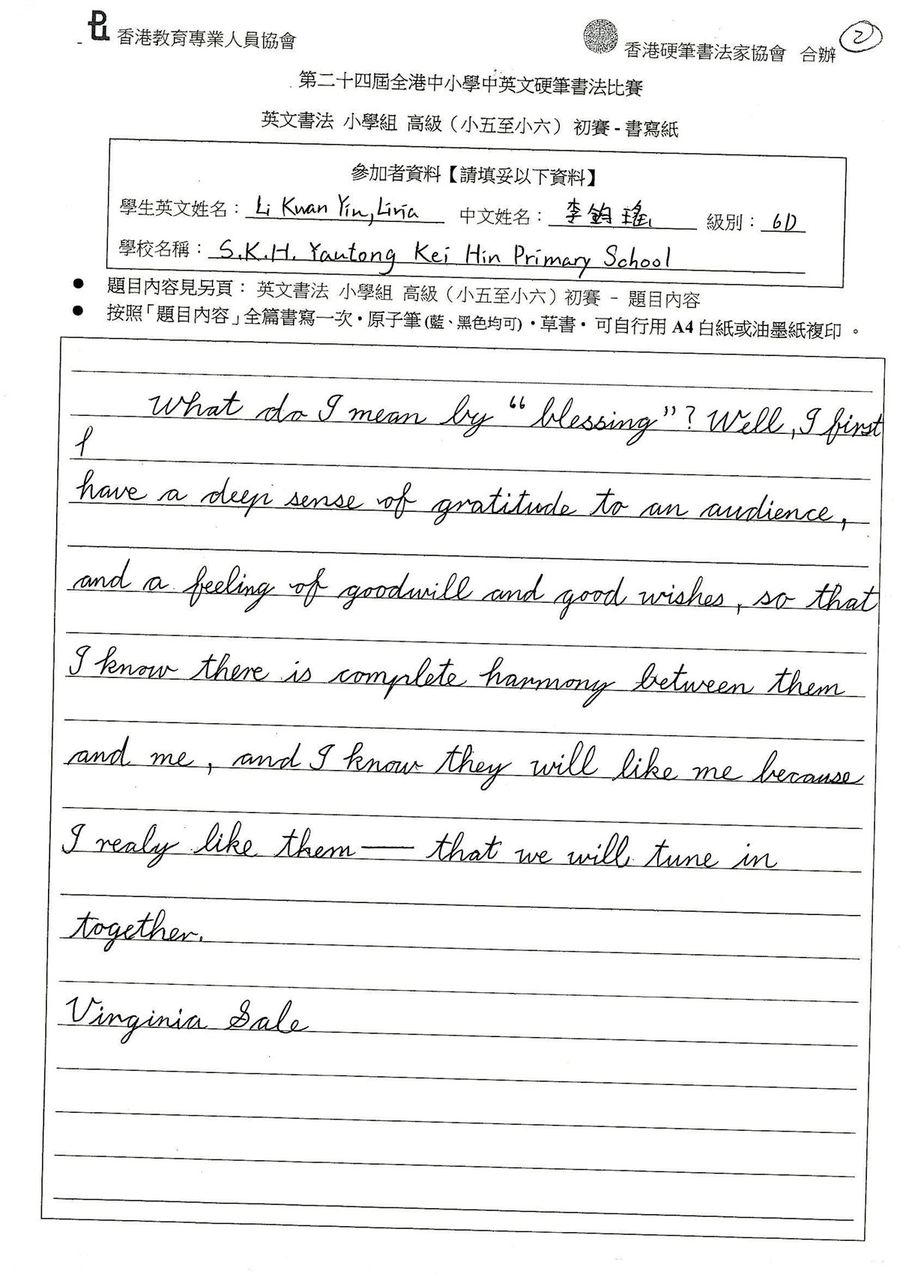 香港教育專業人員協會
香港硬筆書法家協會 合辦
2
第二十四屆全港中小學中英文硬筆書法比賽
英文書法 小學組 高級（小五至小六） 初賽 - 書寫紙
參加者資料【請填妥以下資料】
學生英文姓名：Li Kwan Yiu, Livia 中文姓名：李鈞瑤 級別：6D
學校名稱：S.K.H. Yautong Kei Hin Primary School
● 題目內容見另頁：英文書法 小學組 高級（小五至小六）初賽 - 題目內容
● 按照「題目內容」全篇書寫一次‧原子筆(藍、黑色均可)‧草書‧可自行用 A4 白紙或油墨紙複印 。
What do I mean by “blessing”? Well, I first
have a deep sense of gratitude to an audience,
and a feeling of goodwill and good wishes, so that
I know there is complete harmony between them
and me, and I know they will like me because
I realy like them — that we will tune in
together.
Virginia Sale